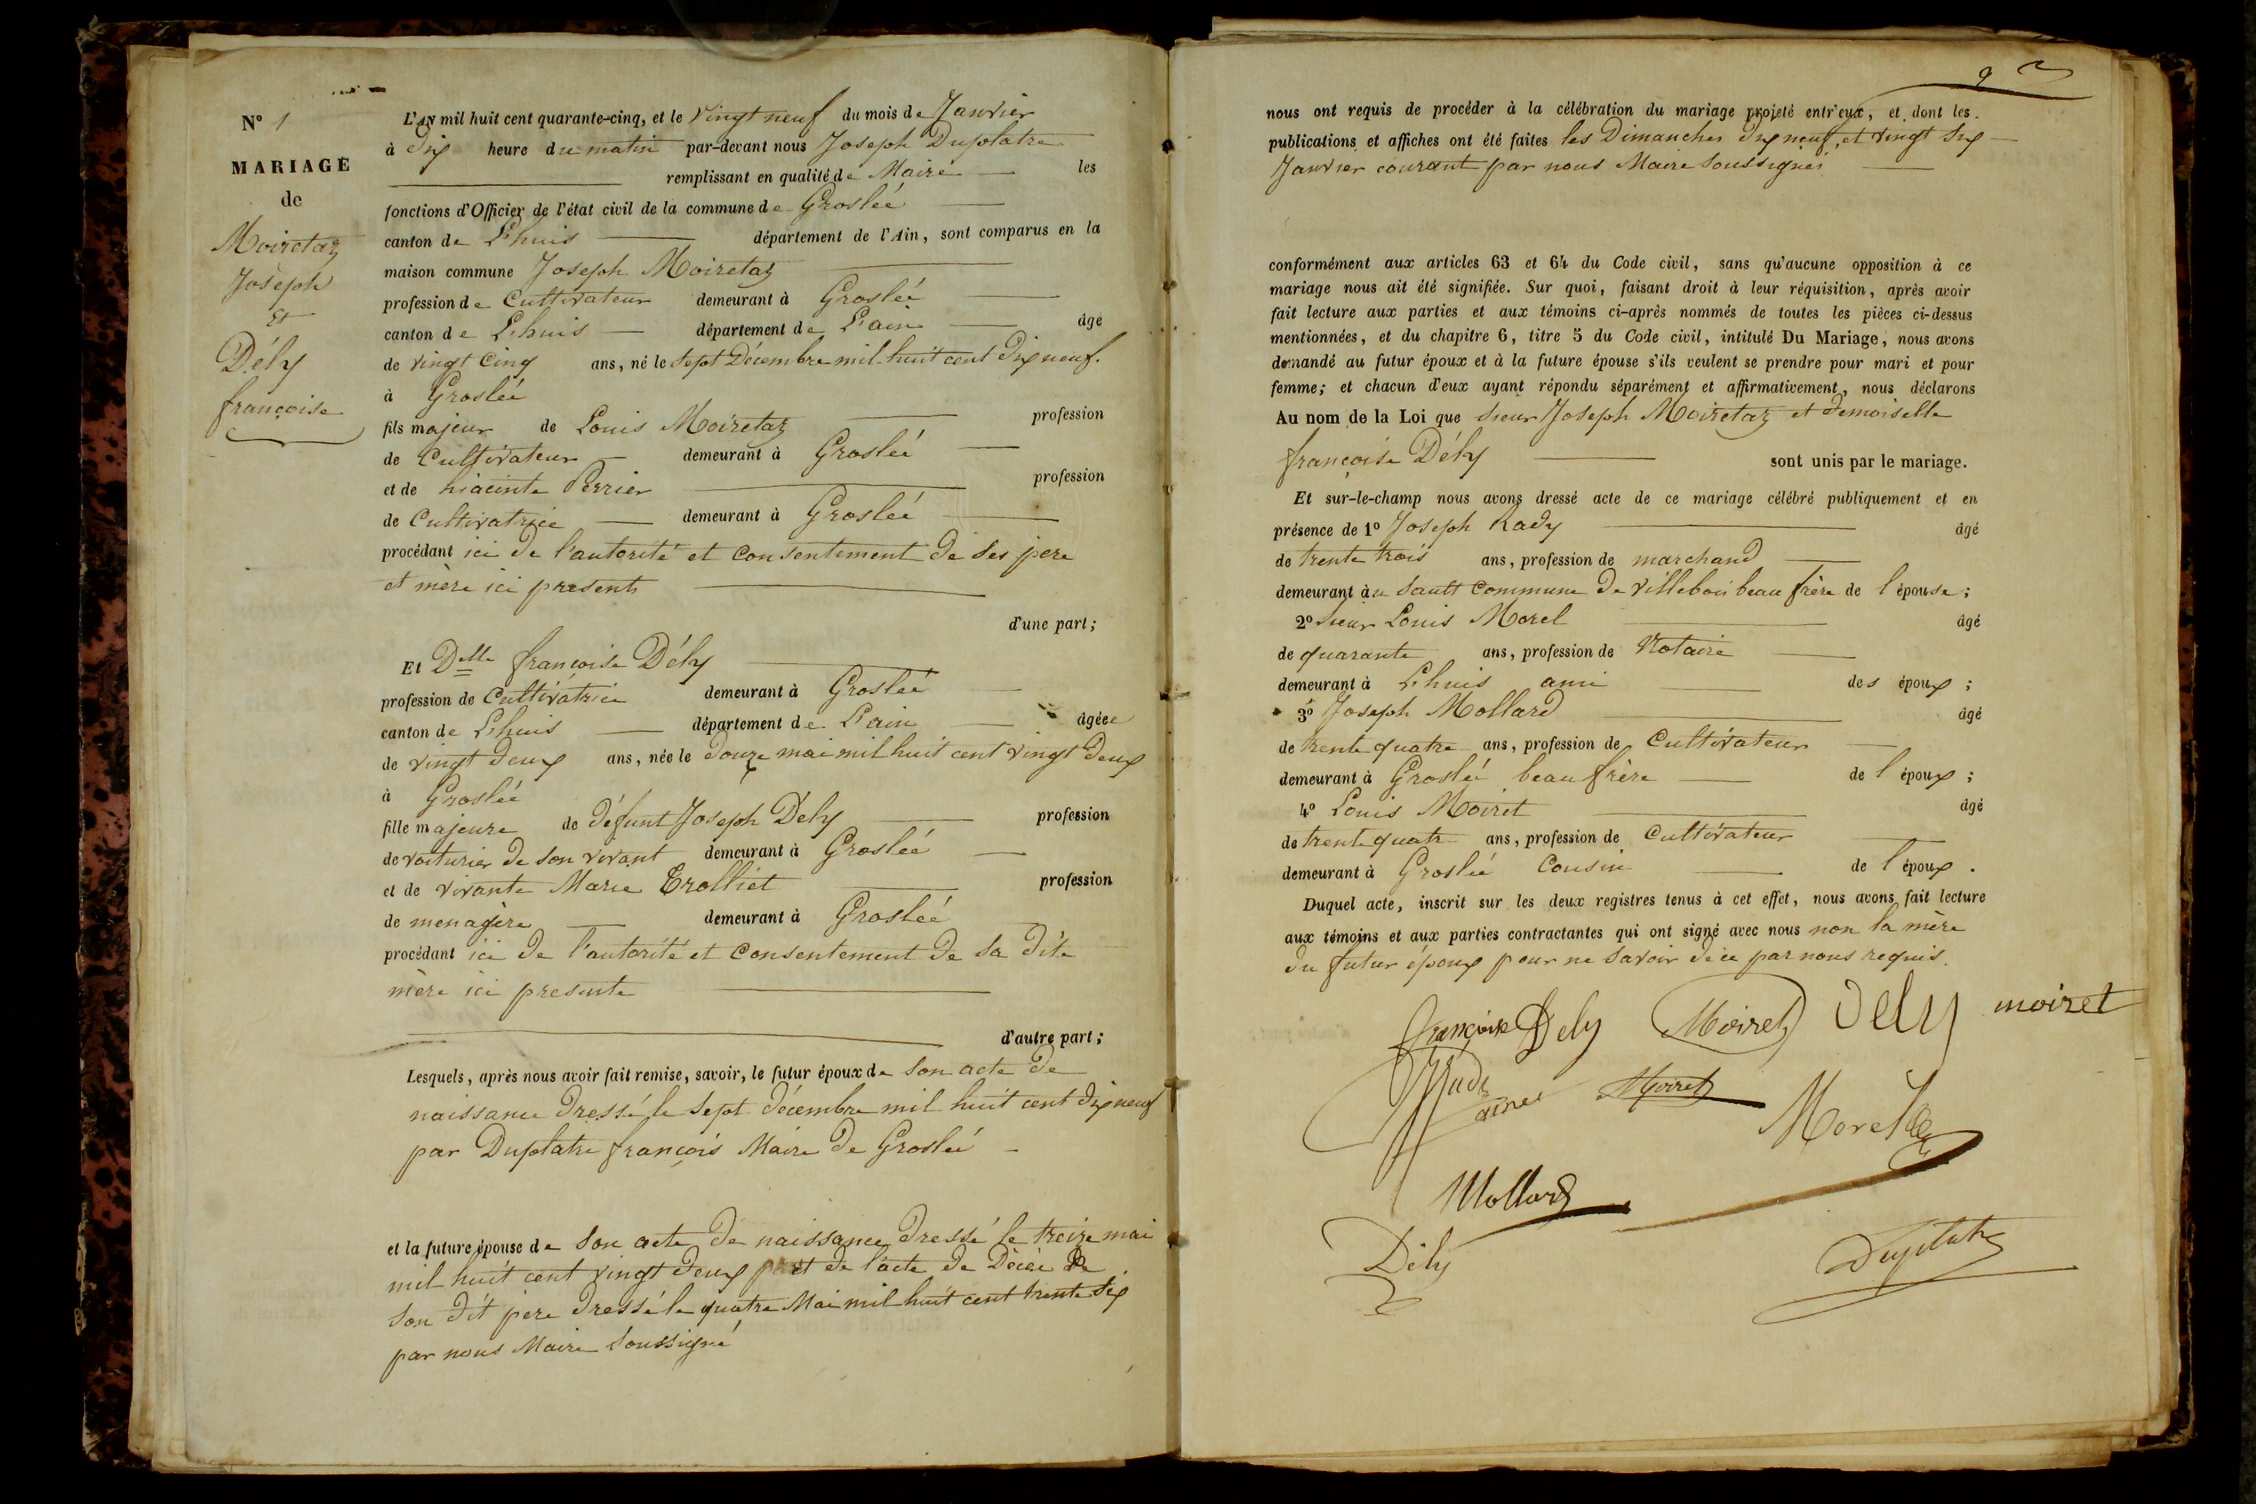 N° 1
MARIAGE
de
Moiretaz
Joseph
Et
Dély
françoise
L'an mil huit cent quarante-cinq, et le vingt neuf du mois de Janvier
à dix heure du matin par-devant nous Joseph Duplatre
remplissant en qualité de Maire les
fonctions d'Officier de l'état civil de la commune de Groslée
canton de Lhuis département de l'Ain, sont comparus en la
maison commune Joseph Moiretaz
profession de Cultivateur demeurant à Groslée
canton de Lhuis département de L'ain âgé
de vingt cinq ans, né le sept Décembre mil huit cent dix neuf.
à Groslée
fils majeur de Louis Moiretaz profession
de Cultivateur demeurant à Groslée
et de hiacinte Perrier profession
de Cultivatrice demeurant à Groslée
procédant ici de l'autorité et consentement de ses pere
et mère ici presents
d'une part;
Et Delle françoise Dély
profession de Cultivatrice demeurant à Groslée
canton de Lhuis département de L'ain âgée
de vingt deux ans, née le douze mai mil huit cent vingt deux
à Groslée
fille majeure de défunt Joseph Dély profession
de voiturier de son vivant demeurant à Groslée
et de vivante Marie Trolliet profession
de menagère demeurant à Groslée
procédant ici de l'autorité et consentement de sa dite
mère ici presente
d'autre part;
Lesquels, après nous avoir fait remise, savoir, le futur époux de son acte de
naissance dressé le sept décembre mil huit cent dix neuf
par Duplatre françois Maire de Groslée
et la future épouse de son acte de naissance dressé le treize mai
mil huit cent vingt deux et de l'acte de Décée de
son dit pere dressé le quatre Mai mil huit cent trente six
par nous Maire soussigné
2
nous ont requis de procéder à la célébration du mariage projeté entr'eux, et dont les
publications et affiches ont été faites les Dimanches dix neuf, et vingt six
Janvier courant par nous Maire soussignés
conformément aux articles 63 et 64 du Code civil, sans qu'aucune opposition à ce
mariage nous ait été signifiée. Sur quoi, faisant droit à leur réquisition, après avoir
fait lecture aux parties et aux témoins ci-après nommés de toutes les pièces ci-dessus
mentionnées, et du chapitre 6, titre 5 du Code civil, intitulé Du Mariage, nous avons
demandé au futur époux et à la future épouse s'ils veulent se prendre pour mari et pour
femme; et chacun d'eux ayant répondu séparément et affirmativement, nous déclarons
Au nom de la Loi que sieur Joseph Moiretaz et demoiselle
françoise Dély sont unis par le mariage.
Et sur-le-champ nous avons dressé acte de ce mariage célébré publiquement et en
présence de 1° Joseph Rady âgé
de trente trois ans, profession de marchand
demeurant au Sault commune de villebois beau frère de l'épouse;
2° sieur Louis Morel âgé
de quarante ans, profession de Notaire
demeurant à Lhuis ami des époux;
3° Joseph Mollard âgé
de trente quatre ans, profession de Cultivateur
demeurant à Groslée beau frère de l'époux;
4° Louis Moiret âgé
de trente quatre ans, profession de Cultivateur
demeurant à Groslée Cousin de l'époux.
Duquel acte, inscrit sur les deux registres tenus à cet effet, nous avons fait lecture
aux témoins et aux parties contractantes qui ont signé avec nous non la mère
du futur époux pour ne savoir de ce par nous requis.
françoise Dely Moiret Dely moiret
Rady ainé Moiret
Morel
Mollard
Dély
Duplatre